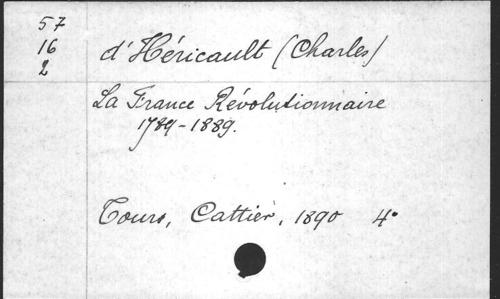 57
16
2
d'Héricault (Charles)
La France Révolutionnaire
1789-1889.
Tours, Cattier, 1890 4°